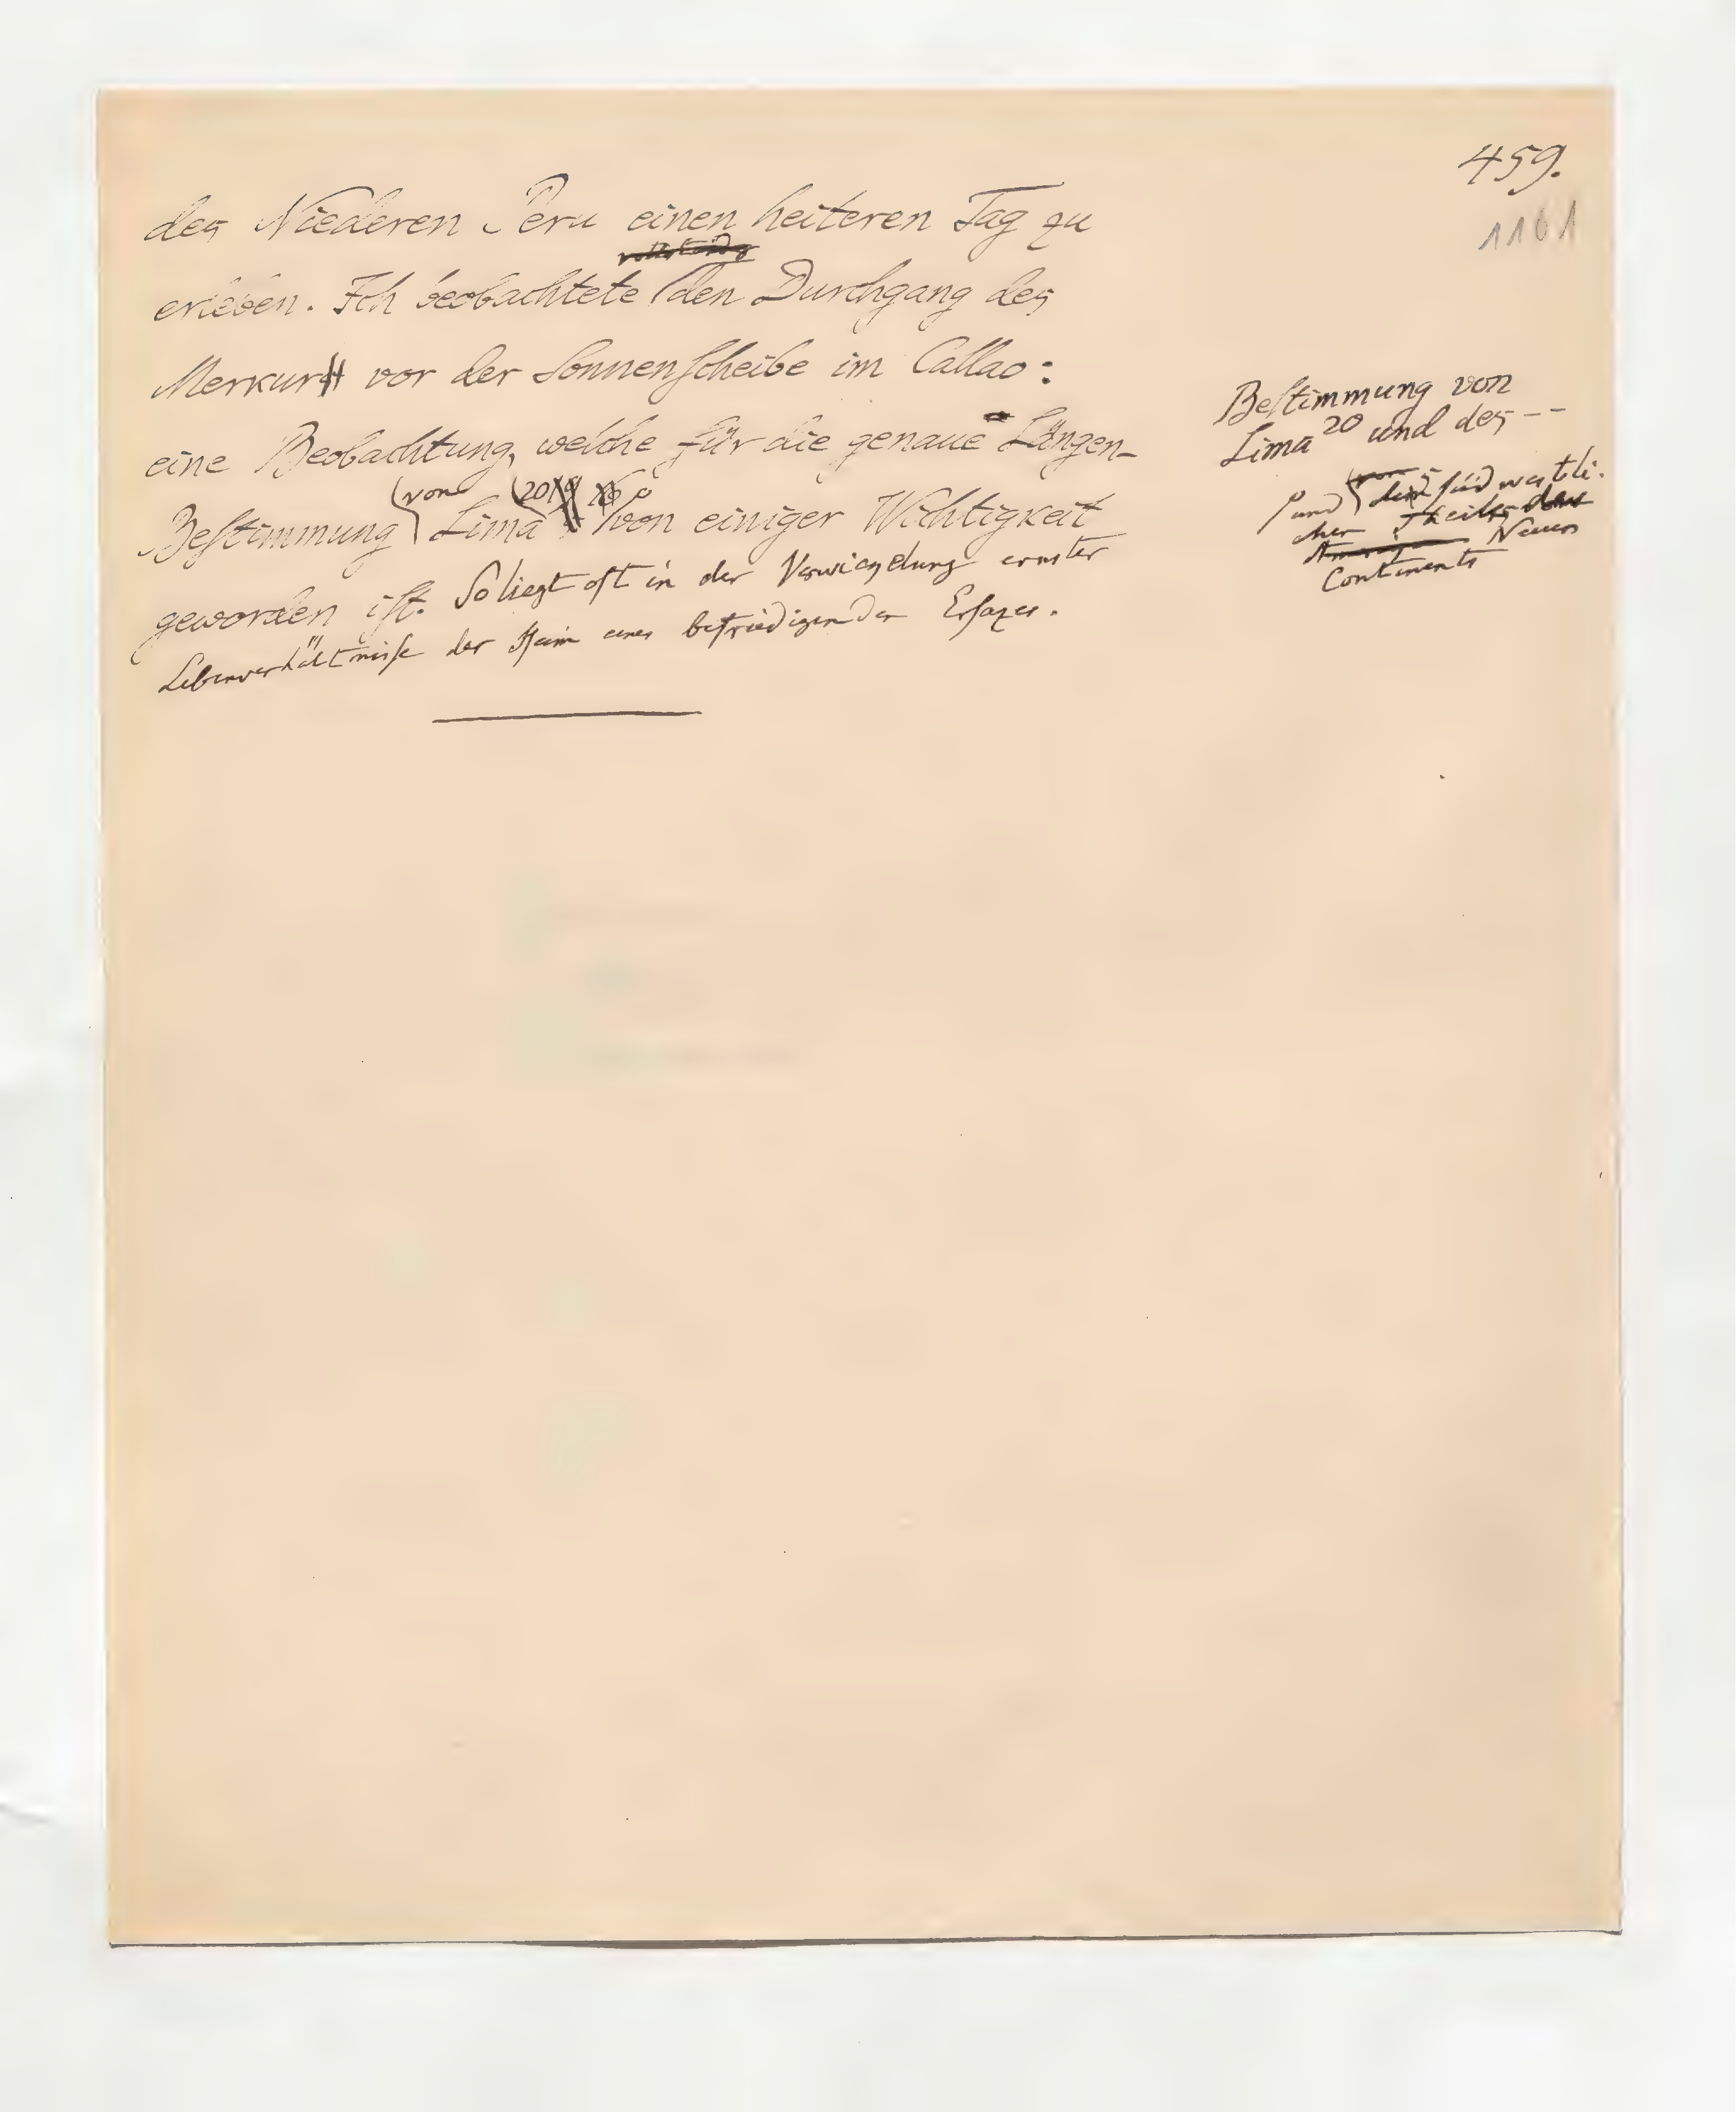 459.
1161
des Niederen Peru einen heiteren Tag zu
vollständig
erleben. Ich beobachtete den Durchgang des
Merkur vor der Sonnenscheibe im Callao:
eine Beobachtung, welche für die genaue Längen-
von 20
Bestimmung Lima von einiger Wichtigkeit
geworden ist. So liegt oft in der Verwickelung ernster
Lebensverhältnisse der Keim eines befriedigenden Ersazes.
Bestimmung von
Lima 20 und des --
und von des südwestli-
chen Theils des
Neuen
Continents